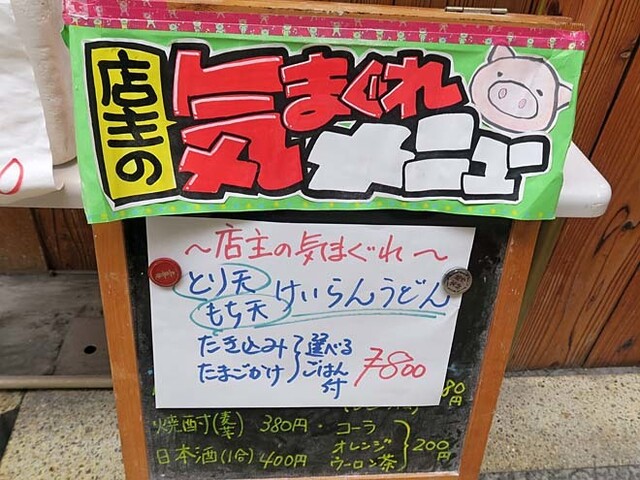 店主の
気まぐれ
メニュー
〜店主の気まぐれ〜
とり天
もち天
けいらんうどん
たき込み
たまごかけ
選べる
ごはん
付
¥800
80円
焼酎(麦芋) 380円・コーラ
オレンジ
日本酒(1合) 400円 ウーロン茶
200円